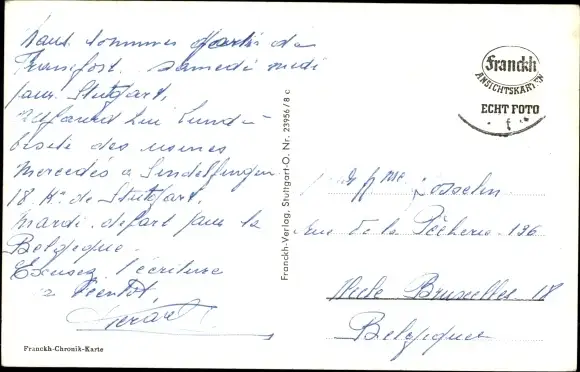 sommes partis de
Francfort. samedi midi
pour Stuttgart.
lundi
visite des usines
Mercedès a Sindelfingen
18 Km. de Stuttgart.
Mardi. depart pour la
Belgique.
Excusez l'écriture
a Bientot,
Franckh-Chronik-Karte
Franckh-Verlag, Stuttgart-O. Nr. 23956/8 c
Franckh
ANSICHTSKARTEN
ECHT FOTO
f
Mme Cosselin
Rue de la Pêcherie 136
Uccle Bruxelles 18
Belgique